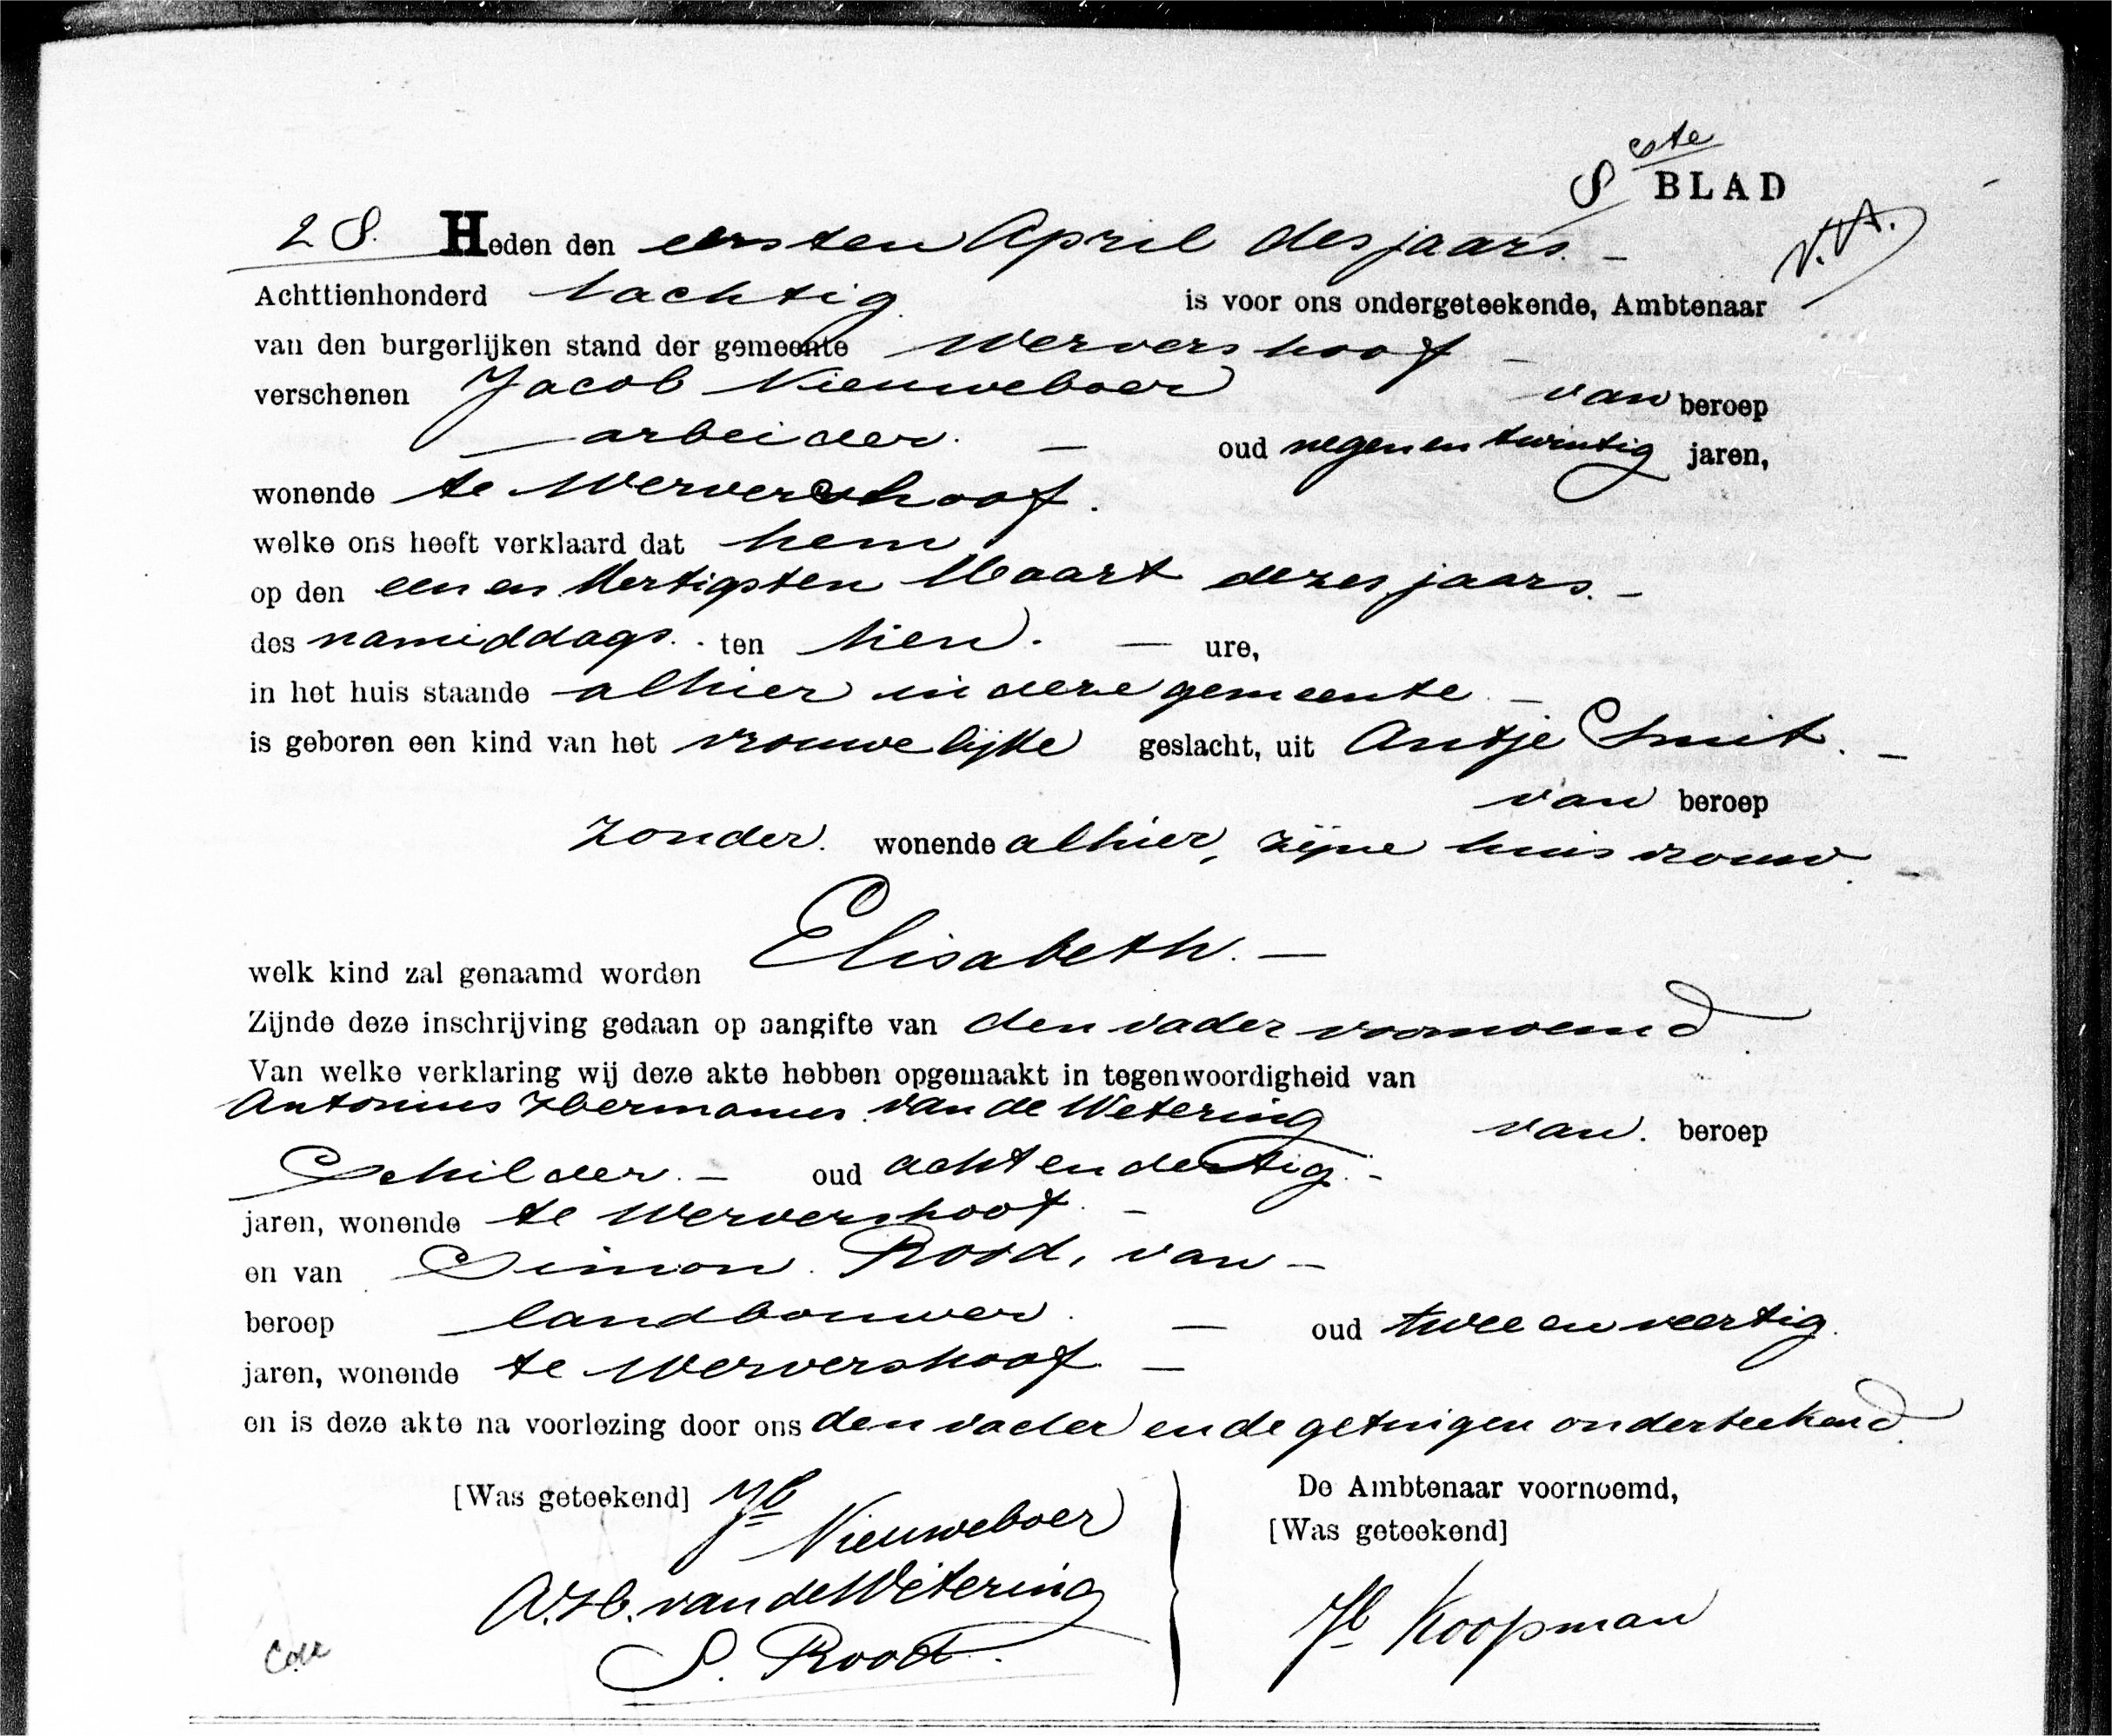 8ste BLAD
28. Heden den eersten April des jaars.
V.A.
Achttienhonderd tachtig is voor ons ondergeteekende, Ambtenaar
van den burgerlijken stand der gemeente Wervershoof
verschenen Jacob Nieuweboer van beroep
arbeider. oud negenentwintig jaren,
wonende te Wervershoof.
welke ons heeft verklaard dat hem
op den een en dertigsten Maart dezes jaars.
des namiddags. ten tien. ure,
in het huis staande alhier in deze gemeente
is geboren een kind van het vrouwelijke geslacht, uit Antje Smit.
van beroep
zonder. wonende alhier, zijne huisvrouw.
welk kind zal genaamd worden Elisabeth.
Zijnde deze inschrijving gedaan op aangifte van den vader voornoemd.
Van welke verklaring wij deze akte hebben opgemaakt in tegenwoordigheid van
Antonius Hermanus van de Wetering van. beroep
Schilder. oud acht en dertig.
jaren, wonende te Wervershoof.
en van Simon Rood, van
beroep landbouwer. oud twee en veertig.
jaren, wonende te Wervershoof.
en is deze akte na voorlezing door ons den vader en de getuigen onderteekend.
[Was geteekend] Jb Nieuweboer
A.H. van de Wetering
S. Rood.
De Ambtenaar voornoemd,
[Was geteekend]
Jb Koopman